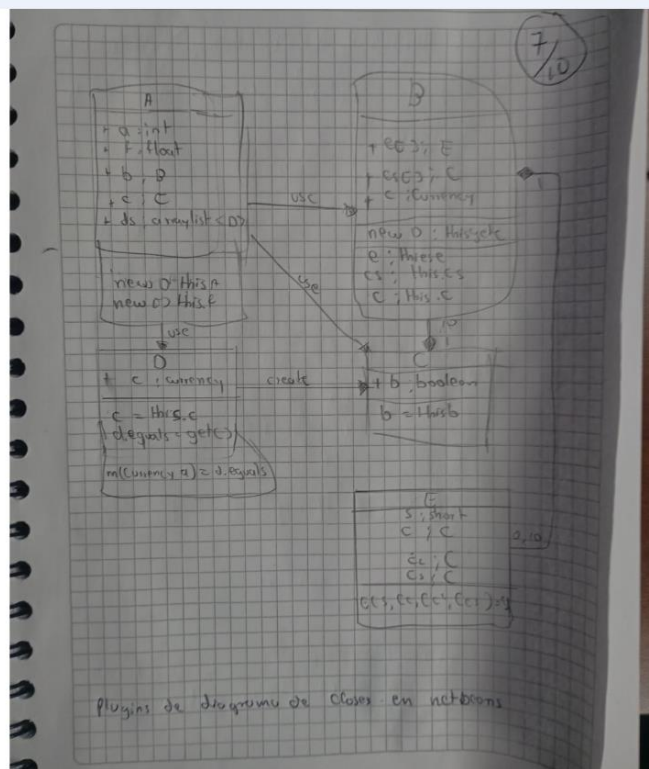 7/10
A
+ a : int
+ f : float
+ b : B
+ c : C
+ ds : arraylist <D>
new D this.A
new D this.f
use
use
use
B
+ e[] ; E
+ cs[] ; C
+ c : Currency
new D :
e :
cs : this.cs
c : this.c
1
10
1
D
+ c : currency
c = this.c
d.equals = get()
m(Currency a) = d.equals
create
C
+ b : boolean
b = this b
E
s : short
c : C
: C
: C
0,10
Plugins de diagrama de clases en netbeans